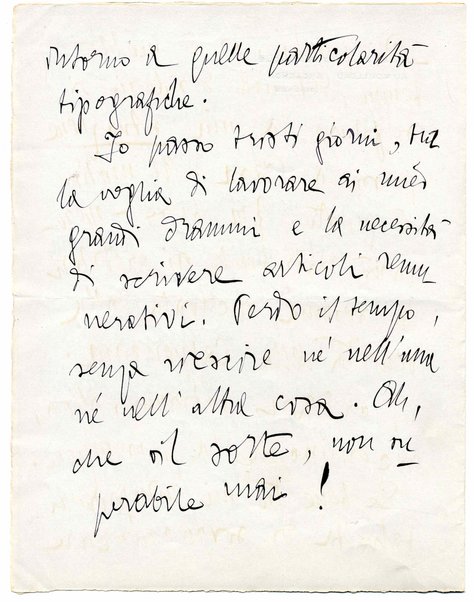 intorno a quelle particolarità
tipografiche.
Io passo tristi giorni, tra
la voglia di lavorare ai miei
grandi drammi e la necessità
di scrivere articoli remu
nerativi. Perdo il tempo,
senza riescire né nell'una
né nell'altra cosa. Oh,
che vil sorte, non su
perabile mai!